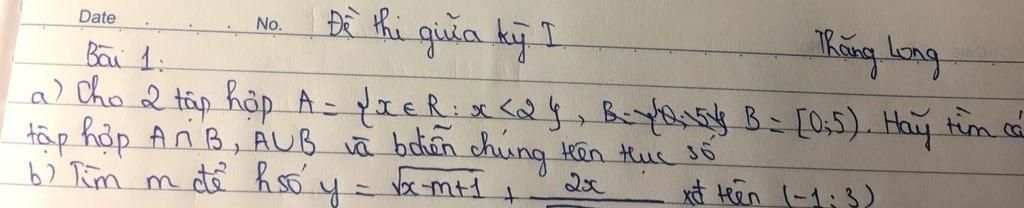 Date No. Đề thi giữa kỳ I Thăng Long
Bài 1:
a) Cho 2 tập hợp A = {x ∈ R : x < 2}, B = {0; 5} B = [0;5). Hãy tìm cá
tập hợp A ∩ B, A ∪ B và bdiễn chúng trên trục số
b) Tìm m để hsố y = √x-m+1 + 2x xđ trên (-1; 3)